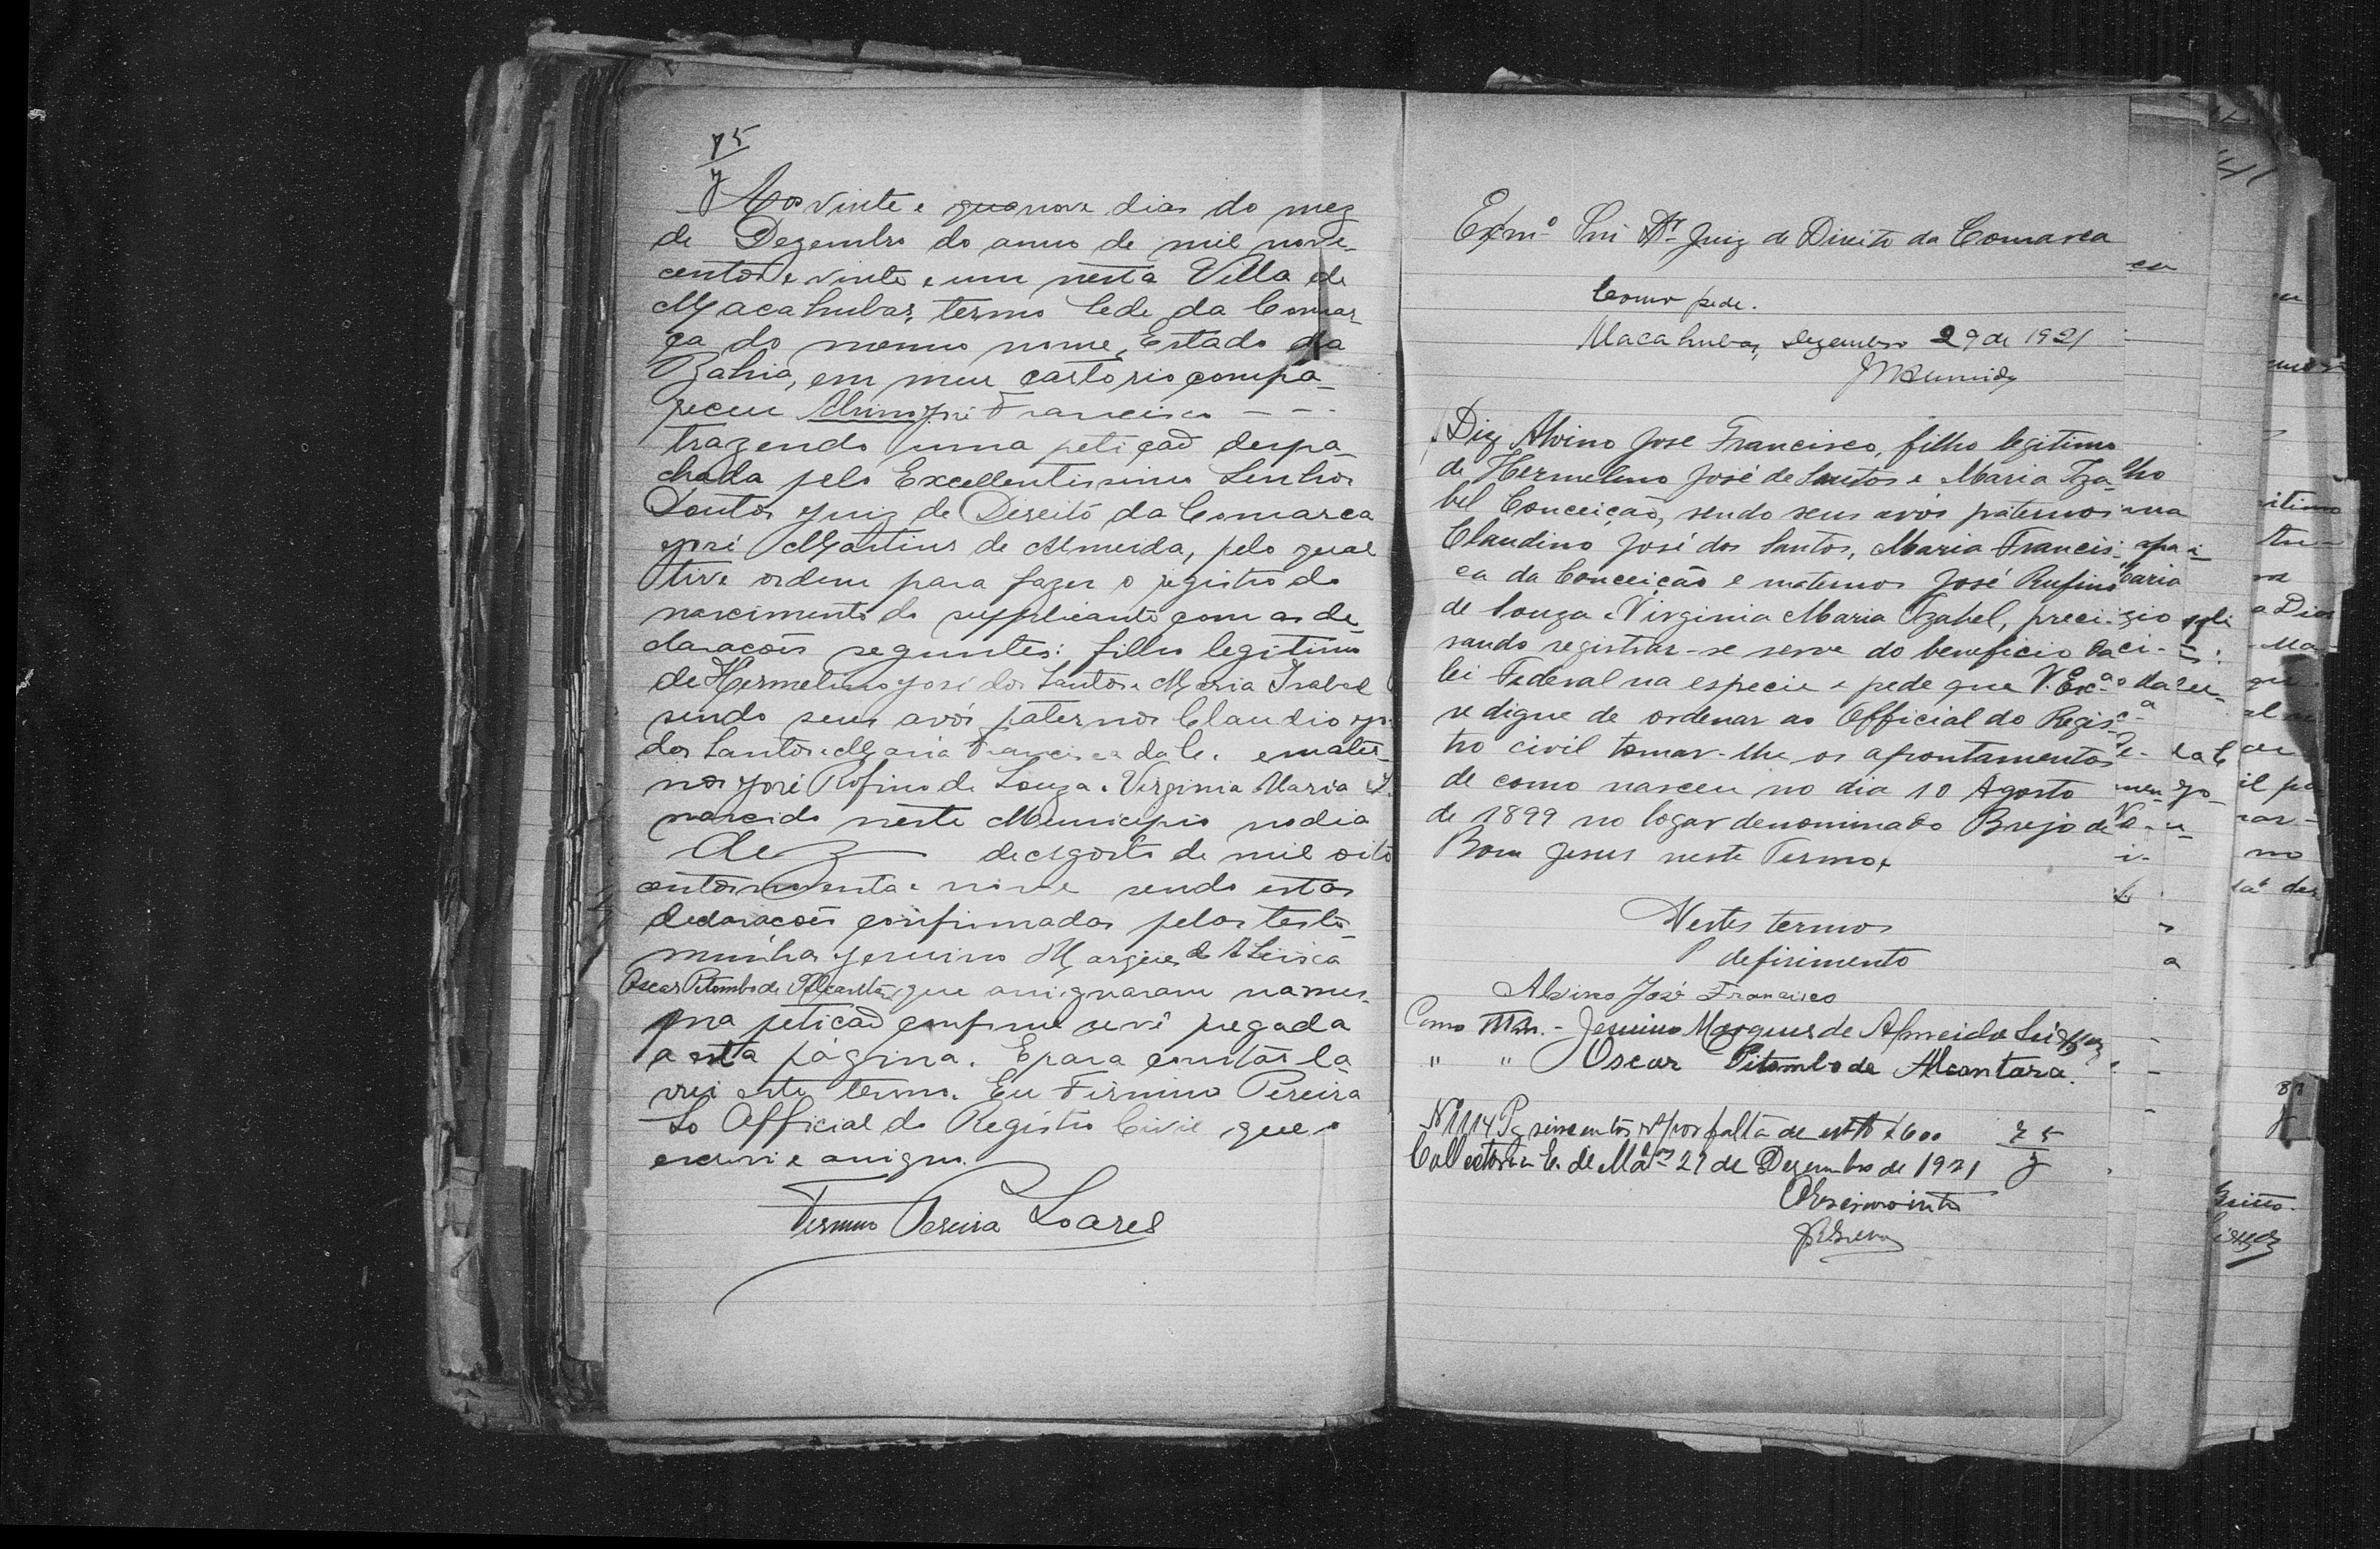 75
J
Aos vinte e qua nove dias do mez
de Dezembro do anno de mil nove-
centos e vinte e um nesta Villa de
Macahubas, termo Sede da Comar-
ca do mesmo nome, Estado da
Bahia, em meu cartorio compa-
receu Alvino José Francisco - - -
trazendo uma petiçaõ despa-
chada pelo Excellentissimo Senhor
Doutor Juiz de Direito da Comarca
José Martins de Almeida, pelo qual
tive ordem para fazer o registro do
nascimento do supplicante com as de-
claraçoẽs seguintes: filho legitimo
de Hermelino José dos Santos e Maria Isabel
sendo seus avós paternos Claudio
dos Santos e Maria Francisca da C. e mater-
nos José Rofino de Souza e Virginia Maria I.
nascido neste Municipio no dia
dez de Agosto de mil oito
centos noventa e nove sendo estas
declaraçoẽs confirmadas pelas teste-
munhas Jesuino Marques de A
Oscar Pitombo de Alcantara, que assignaram
na petiçaõ conforme se vê pregada
a esta página. E para constar la-
vrei este termo. Eu Firmino Pereira
So Official do Registro Civil que o
escrevi e assigno.
Firmino Pereira Soares
Exmº Snr Dr. Juiz de Direito da Comarca
Como pede.
Macahubas, Dezembro 29 de 1921
Diz Alvino José Francisco, filho legitimo
de Hermelino José de Santos e Maria Iza-
bel Conceição, sendo seus avós paternos
Claudino José dos Santos, Maria Francis-
ca da Conceição e maternos José Rufino
de Souza e Virginia Maria Izabel, preci-
sando registrar-se serve do beneficio da
lei Federal na especie e pede que V. Exca
se digne de ordenar ao Official do Regis-
tro civil tomar-lhe os apontamentos
de como nasceu no dia 10 Agosto
de 1899 no logar denominado Brejo de
Bom Jesus neste Termo,
Nestes termos
P deferimento
Alvino José Francisco
Como - Jesuino Marques de Almeida
" " Oscar Pitombo de Alcantara.
Nº 114 Pg seiscentos rs por falta de $600
75
J
Collectoria E. de 29 de Dezembro de 1921